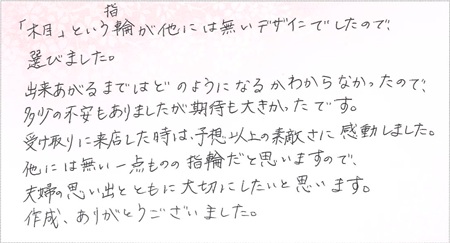 「木目」という指輪が他には無いデザインでしたので、
選びました。
出来あがるまではどのようになるかわからなかったので、
多少の不安もありましたが期待も大きかったです。
受け取りに来店した時は、予想以上の素敵さに感動しました。
他には無い一点ものの指輪だと思いますので、
夫婦の思い出とともに大切にしたいと思います。
作成、ありがとうございました。